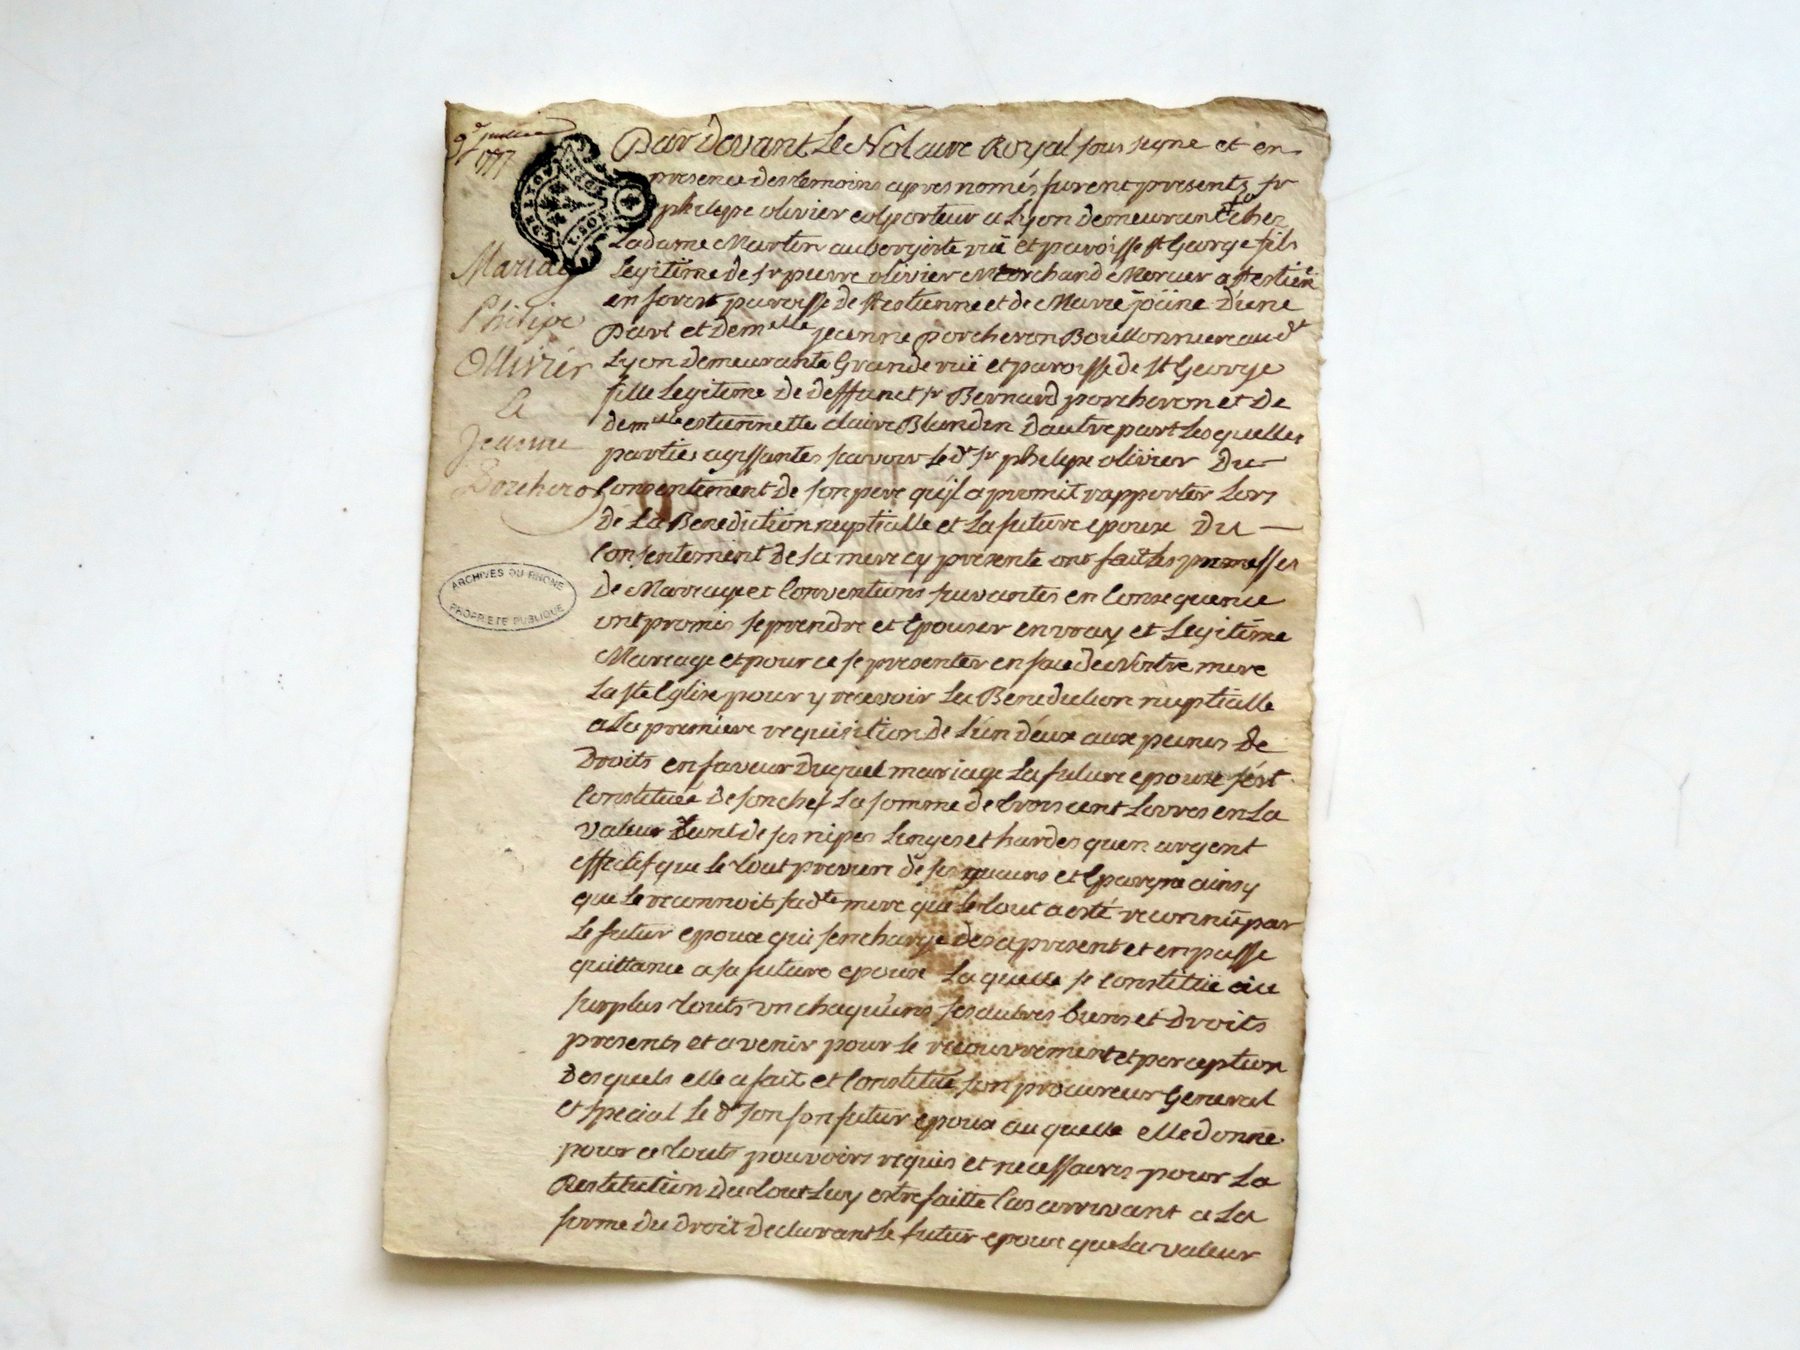 9e
Mariage
Philipe
Ollivier
&
Jeanne
Porcheron
ARCHIVES DU RHONE
PROPRIETE PUBLIQUE
Par Devant Le Notaire Royal sous signe et en
presence des temoins apres només furent presents sr
philipe olivier colporteur a Lyon demeurant chez
La dame Martin aubergiste rüe et paroisse st George fils
Legitime de sr pierre olivier Marchand Mercier a st estiene
en forest paroisse de st estienne et de Marie d'une
Part et demelle jeanne porcheron Boutonniere aud
Lyon demeurante Grande rüe et paroisse de St George
fille Legitime de deffunct sr Bernard porcheron et de
demelle estiennette claire Blundin dautre part Lesquelles
parties agissantes savoir Le dt sr philipe olivier Du
Consentement de son pere qu'il a promit rapporter Lors
de La Benediction nuptialle et La future epouse Du
Consentement de sa mere cy presente ont fait Les promesses
de Mariage et Conventions suivantes en Consequence
ont promis se prendre et Epouser en vray et Legitime
Mariage et pour ce se presenter en face de Nostre mere
La ste Eglise pour y recevoir La Benediction nuptialle
a La premiere requisition de L'un d'eux aux peines de
Droits en faveur Duquel mariage La future epouse s'est
Constituée de son chef La somme de trois cent Livres en La
valeur tant de ses nipes Linges et hardes qu'en argent
effectif que le tout provient de ses gains et Epargne ainsy
que Le reconnoit sadte mere que Le tout a esté reconnü par
Le futur epoux qui s'en charge des a present et en passe
quittance a sa future epouse Laquelle se Constitüe au
surplus touts un chaqu'uns ses autres biens et Droits
presents et avenir pour le recouvrement et perception
Desquels elle a fait et Constitué son procureur General
et special Le dt son son futur epoux auquelle elle donne
pour ce touts pouvoirs requis et necessaires pour La
Restitution du tout Luy estre faitte Cas arrivant a La
forme du droit declarant le futur epoux que La valeur